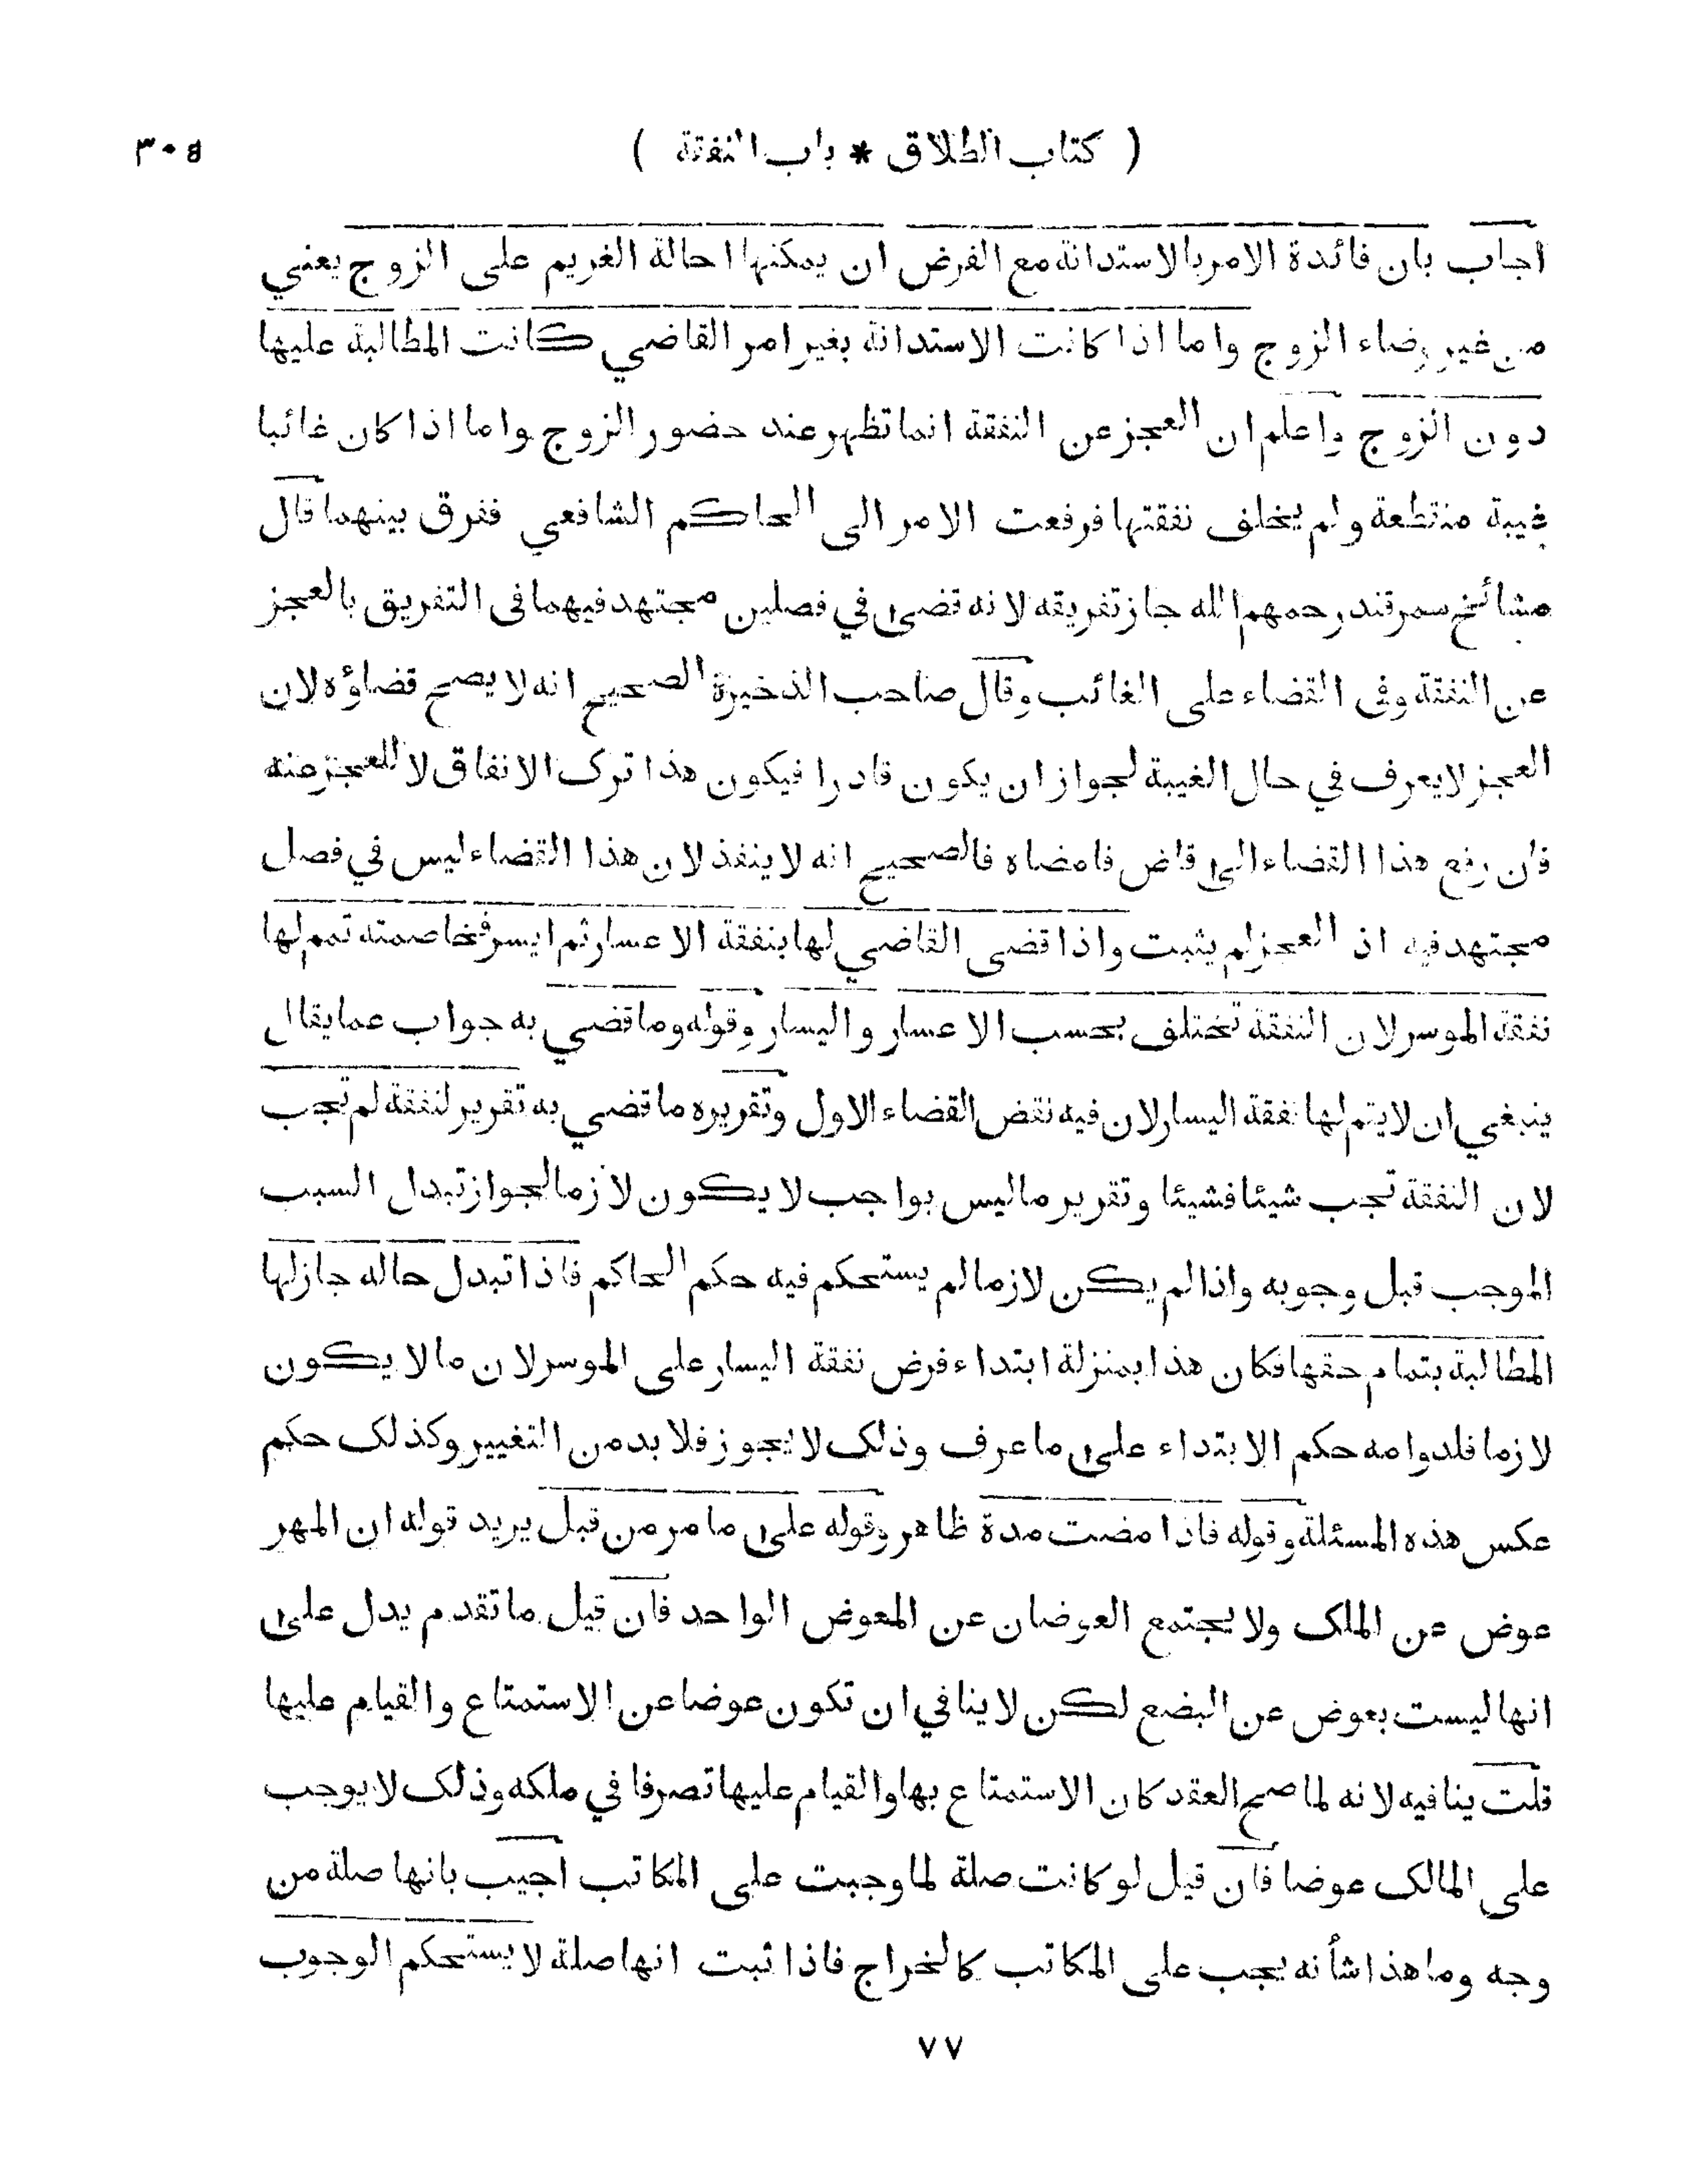 ( كتاب الطلاق * باب النفقة ) ٣٠٥
اجاب بان فائدة الامر بالاستدانة مع الفرض ان يمكنها احالة الغريم على الزوج يعني
من غير رضاء الزوج واما اذا كانت الاستدانة بغير امر القاضي كانت المطالبة عليها
دون الزوج واعلم ان العجز عن النفقة انما تظهر عند حضور الزوج واما اذا كان غائبا
غيبة منقطعة ولم يخلف نفقتها فرفعت الامر الى الحاكم الشافعي ففرق بينهما قال
مشائخ سمرقند رحمهم الله جاز تفريقه لانه قضى في فصلين مجتهد فيهما فى التفريق بالعجز
عن النفقة وفى القضاء على الغائب وقال صاحب الذخيرة الصحيح انه لا يصح قضاؤه لان
العجز لا يعرف في حال الغيبة لجواز ان يكون قادرا فيكون هذا ترك الانفاق لا للعجز عنه
فان رفع هذا القضاء الى قاض فامضاه فالصحيح انه لا ينفذ لان هذا القضاء ليس في فصل
مجتهد فيه اذ العجز لم يثبت واذا قضى القاضي لها بنفقة الاعسار ثم ايسر فخاصمته تمم لها
نفقة الموسر لان النفقة تختلف بحسب الاعسار واليسار وقوله وما قضي به جواب عما يقال
ينبغي ان لا يتم لها نفقة اليسار لان فيه نقض القضاء الاول وتقريره ما قضي به تقرير لنفقة لم تجب
لان النفقة تجب شيئا فشيئا وتقرير ما ليس بواجب لا يكون لازما لجواز تبدل السبب
الموجب قبل وجوبه واذا لم يكن لازما لم يستحكم فيه حكم الحاكم فاذا تبدل حاله جاز لها
المطالبة بتمام حقها فكان هذا بمنزلة ابتداء فرض نفقة اليسار على الموسر لان ما لا يكون
لازما فلدوامه حكم الابتداء على ما عرف وذلك لا يجوز فلا بد من التغيير وكذلك حكم
عكس هذه المسئلة وقوله فاذا مضت مدة ظاهر وقوله على ما مر من قبل يريد قوله ان المهر
عوض عن الملك ولا يجتمع العوضان عن المعوض الواحد فان قيل ما تقدم يدل على
انها ليست بعوض عن البضع لكن لا ينافي ان تكون عوضا عن الاستمتاع والقيام عليها
قلت ينافيه لانه لما صح العقد كان الاستمتاع بها والقيام عليها تصرفا في ملكه وذلك لا يوجب
على المالك عوضا فان قيل لو كانت صلة لما وجبت على المكاتب اجيب بانها صلة من
وجه وما هذا شأنه يجب على المكاتب كالخراج فاذا ثبت انها صلة لا يستحكم الوجوب
٧٧